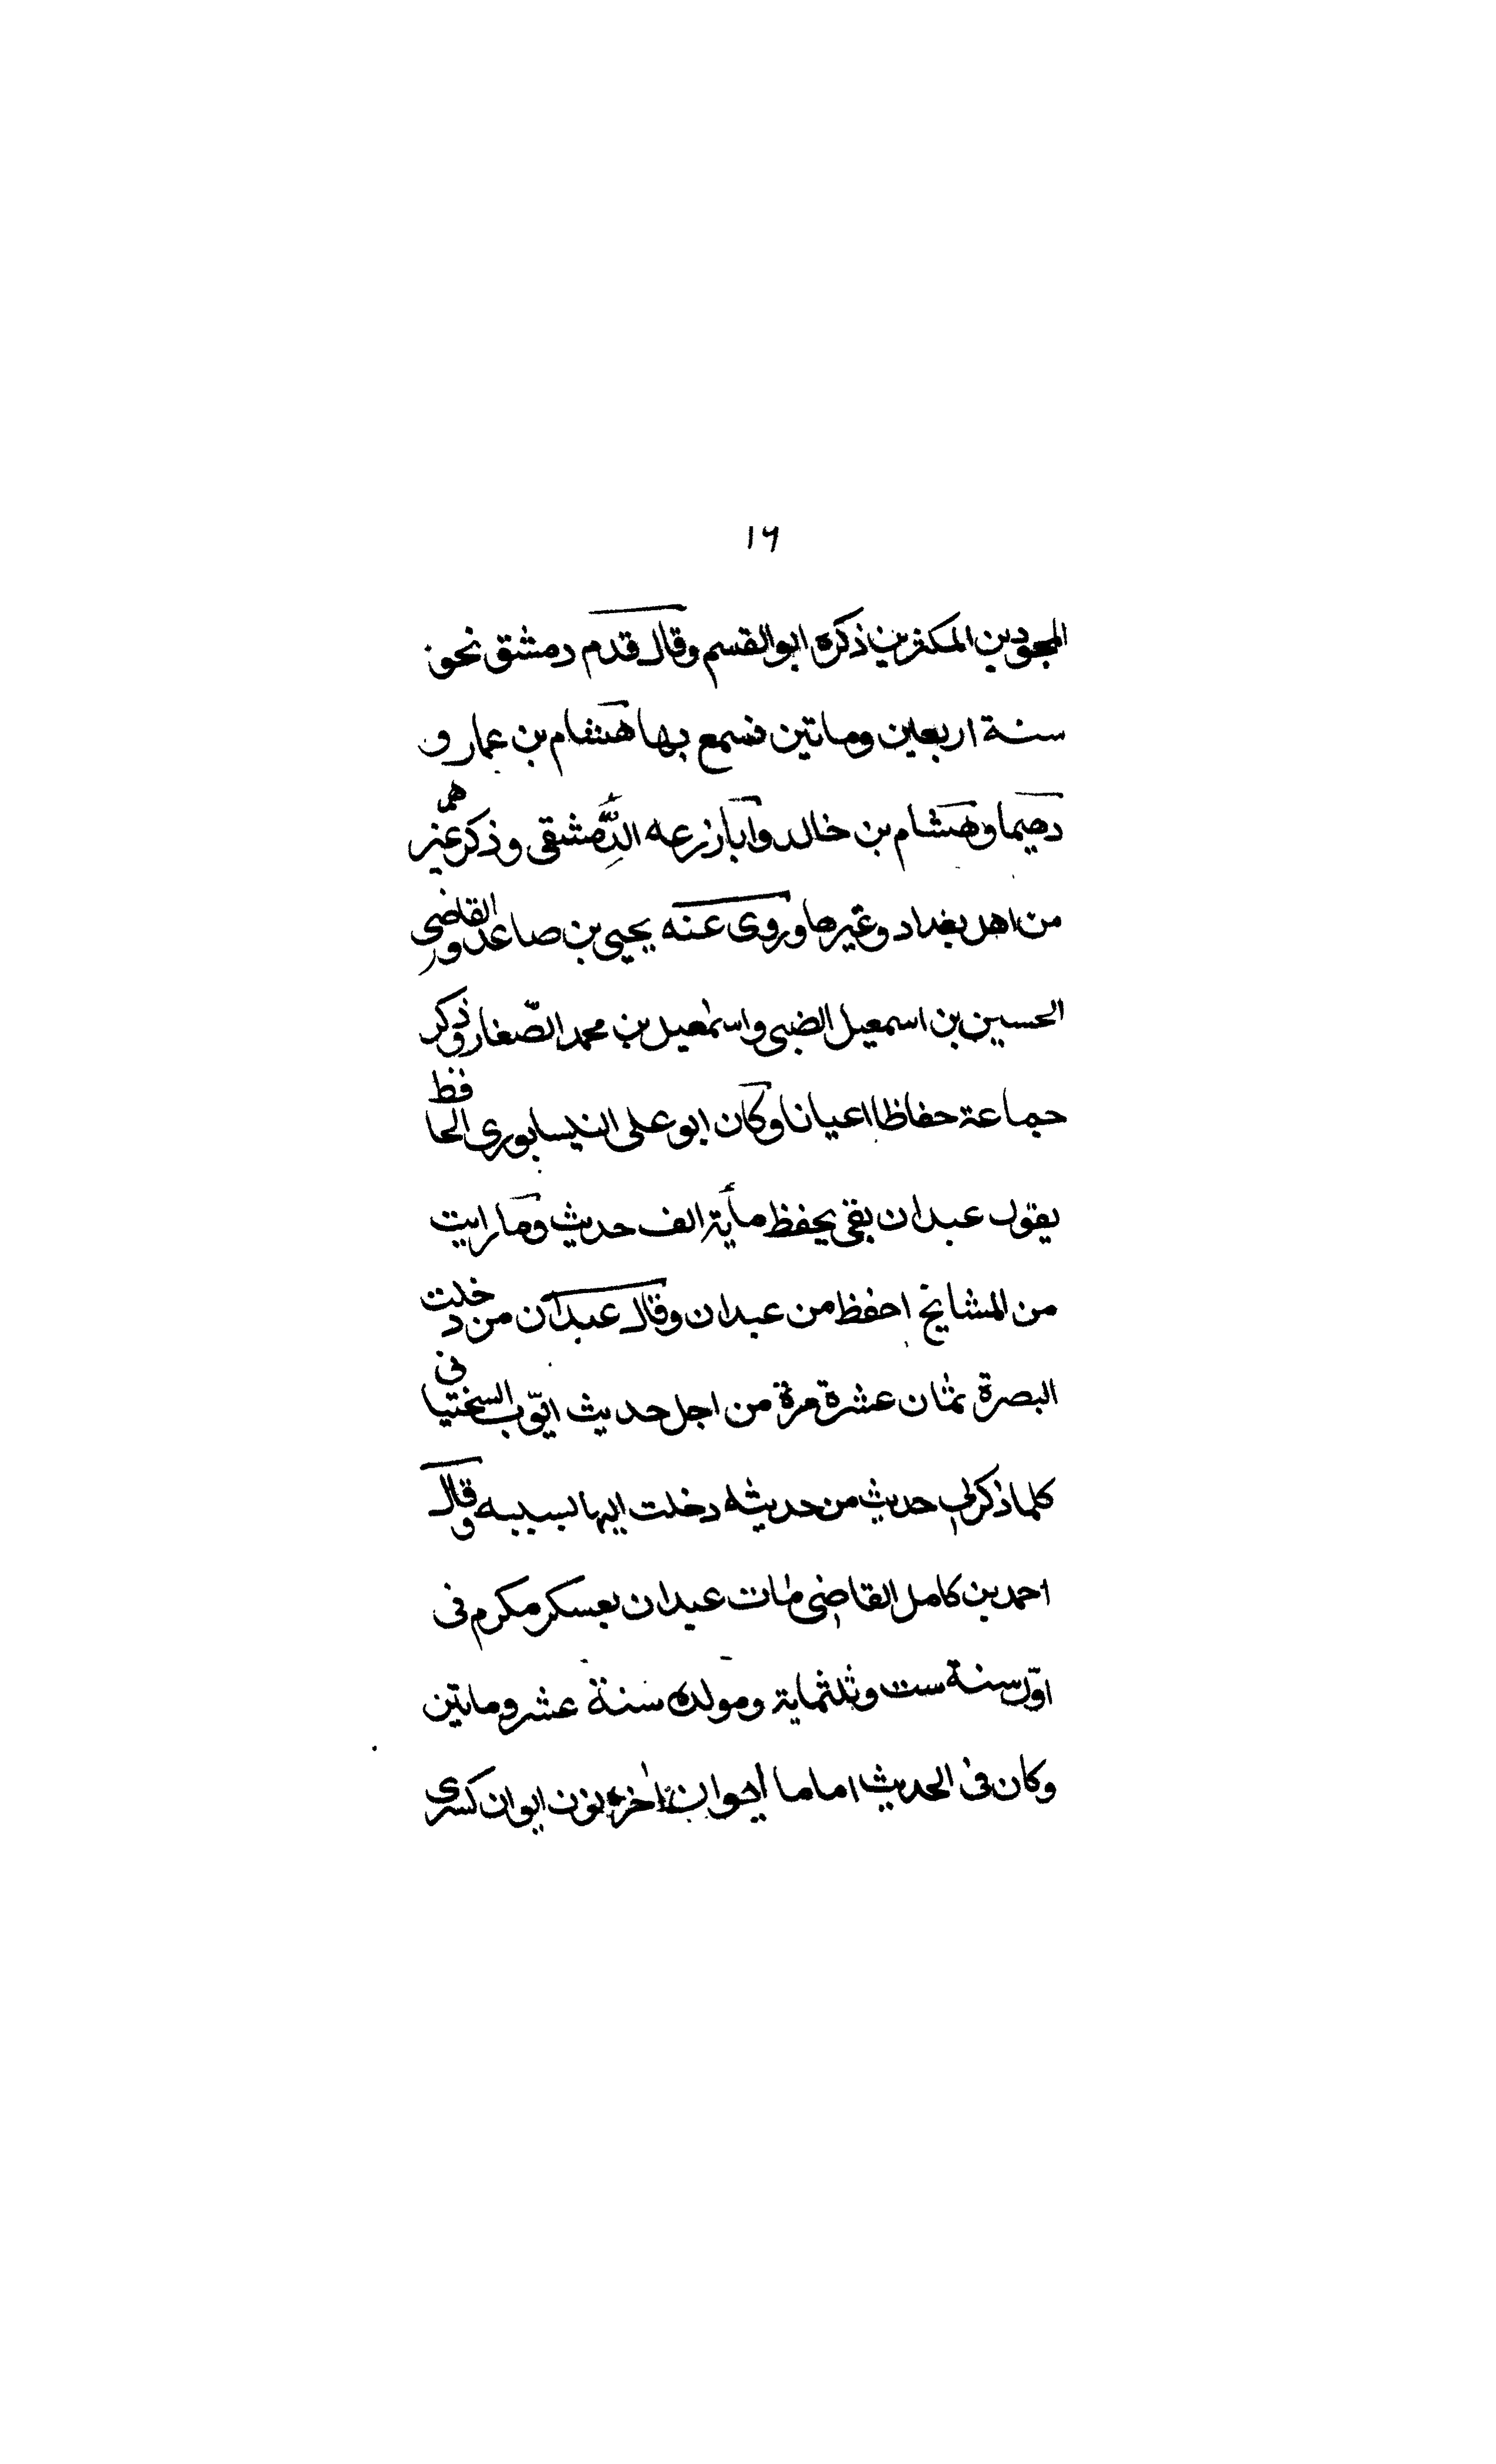 ١٦
المجودين المكثرين ذكره ابو القسم وقال قدم دمشق نحو
سنة اربعين وماتين فسمع بها هشام بن عمار و
دحيما وهشام بن خالد وابا زرعه الدِّمشقى وذكر غيرهم
من اهل بغداد وغيرها وروى عنه يحيى بن صاعد والقاضى
الحسين بن اسمعيل الضبى واسمعيل بن محمد الصّفار وذكر
جماعة حفاظا اعيانا وكان ابو على النيسابورى الحافظ
يقول عبدان بقى يحفظ مأية الف حديث وما رايت
من المشايخ احفظ من عبدان وقال عبدان من دخلت
البصرة ثمان عشرة مرة من اجل حديث ايّوب السختيانى
كلما ذكر لى حديث من حديثه دخلت اليها لسببه وقال
احمد بن كامل القاضى مات عبدان بعسكر مكرم فى
اوّل سنة ست وثلثماية ومولده سنة عشر وماتين
وكان فى الحديث اماما ايوان اخره نون ايوان كسرى